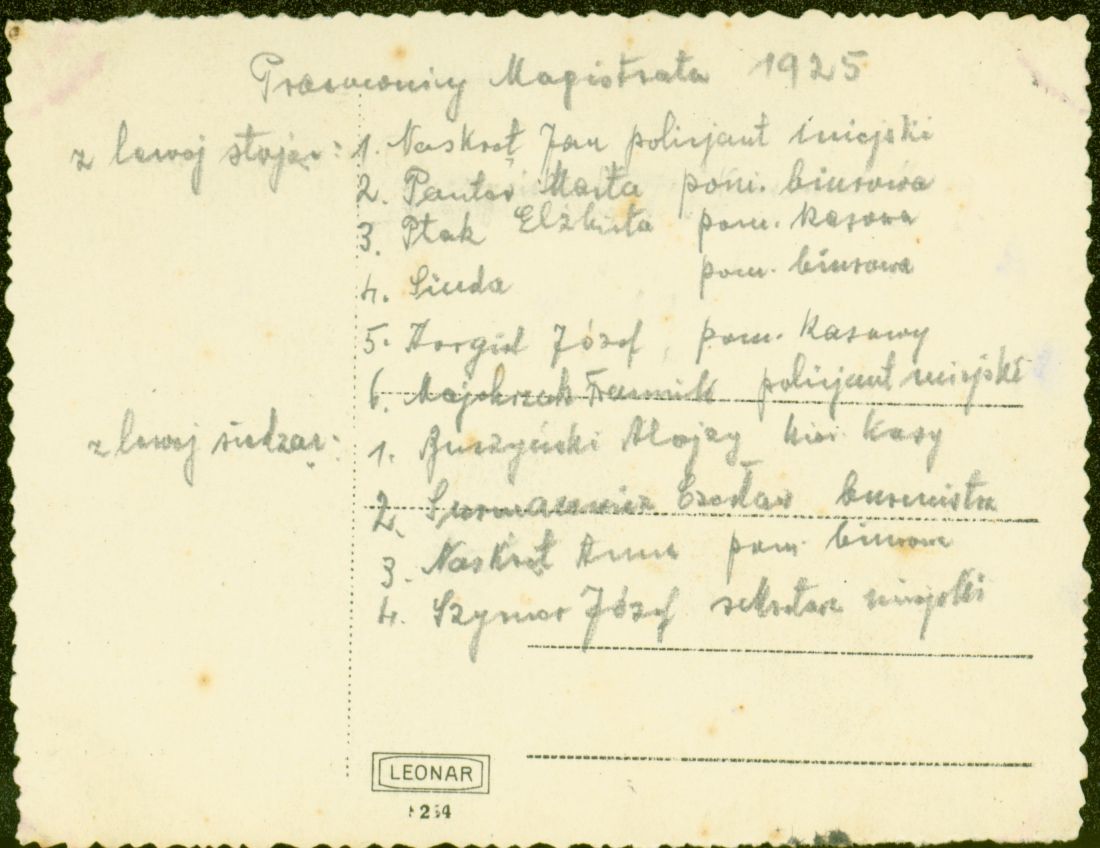 Pracownicy Magistrata 1925
z lewej stojąc: 1. Naskręt Jan policjant miejski
2. Marta pom. biurowa
3. Ptak Elżbieta pom. kasowa
4. Siuda pom. biurowa
5. Józef, pom. kasowy
6. Majchrzak policjant miejski
z lewej siedząc: 1. Buszyński Alojzy kier. kasy
2. Czesław burmistrz
3. Naskręt Anna pom. biurowa
4. Szymor Józef sekretarz miejski
LEONAR